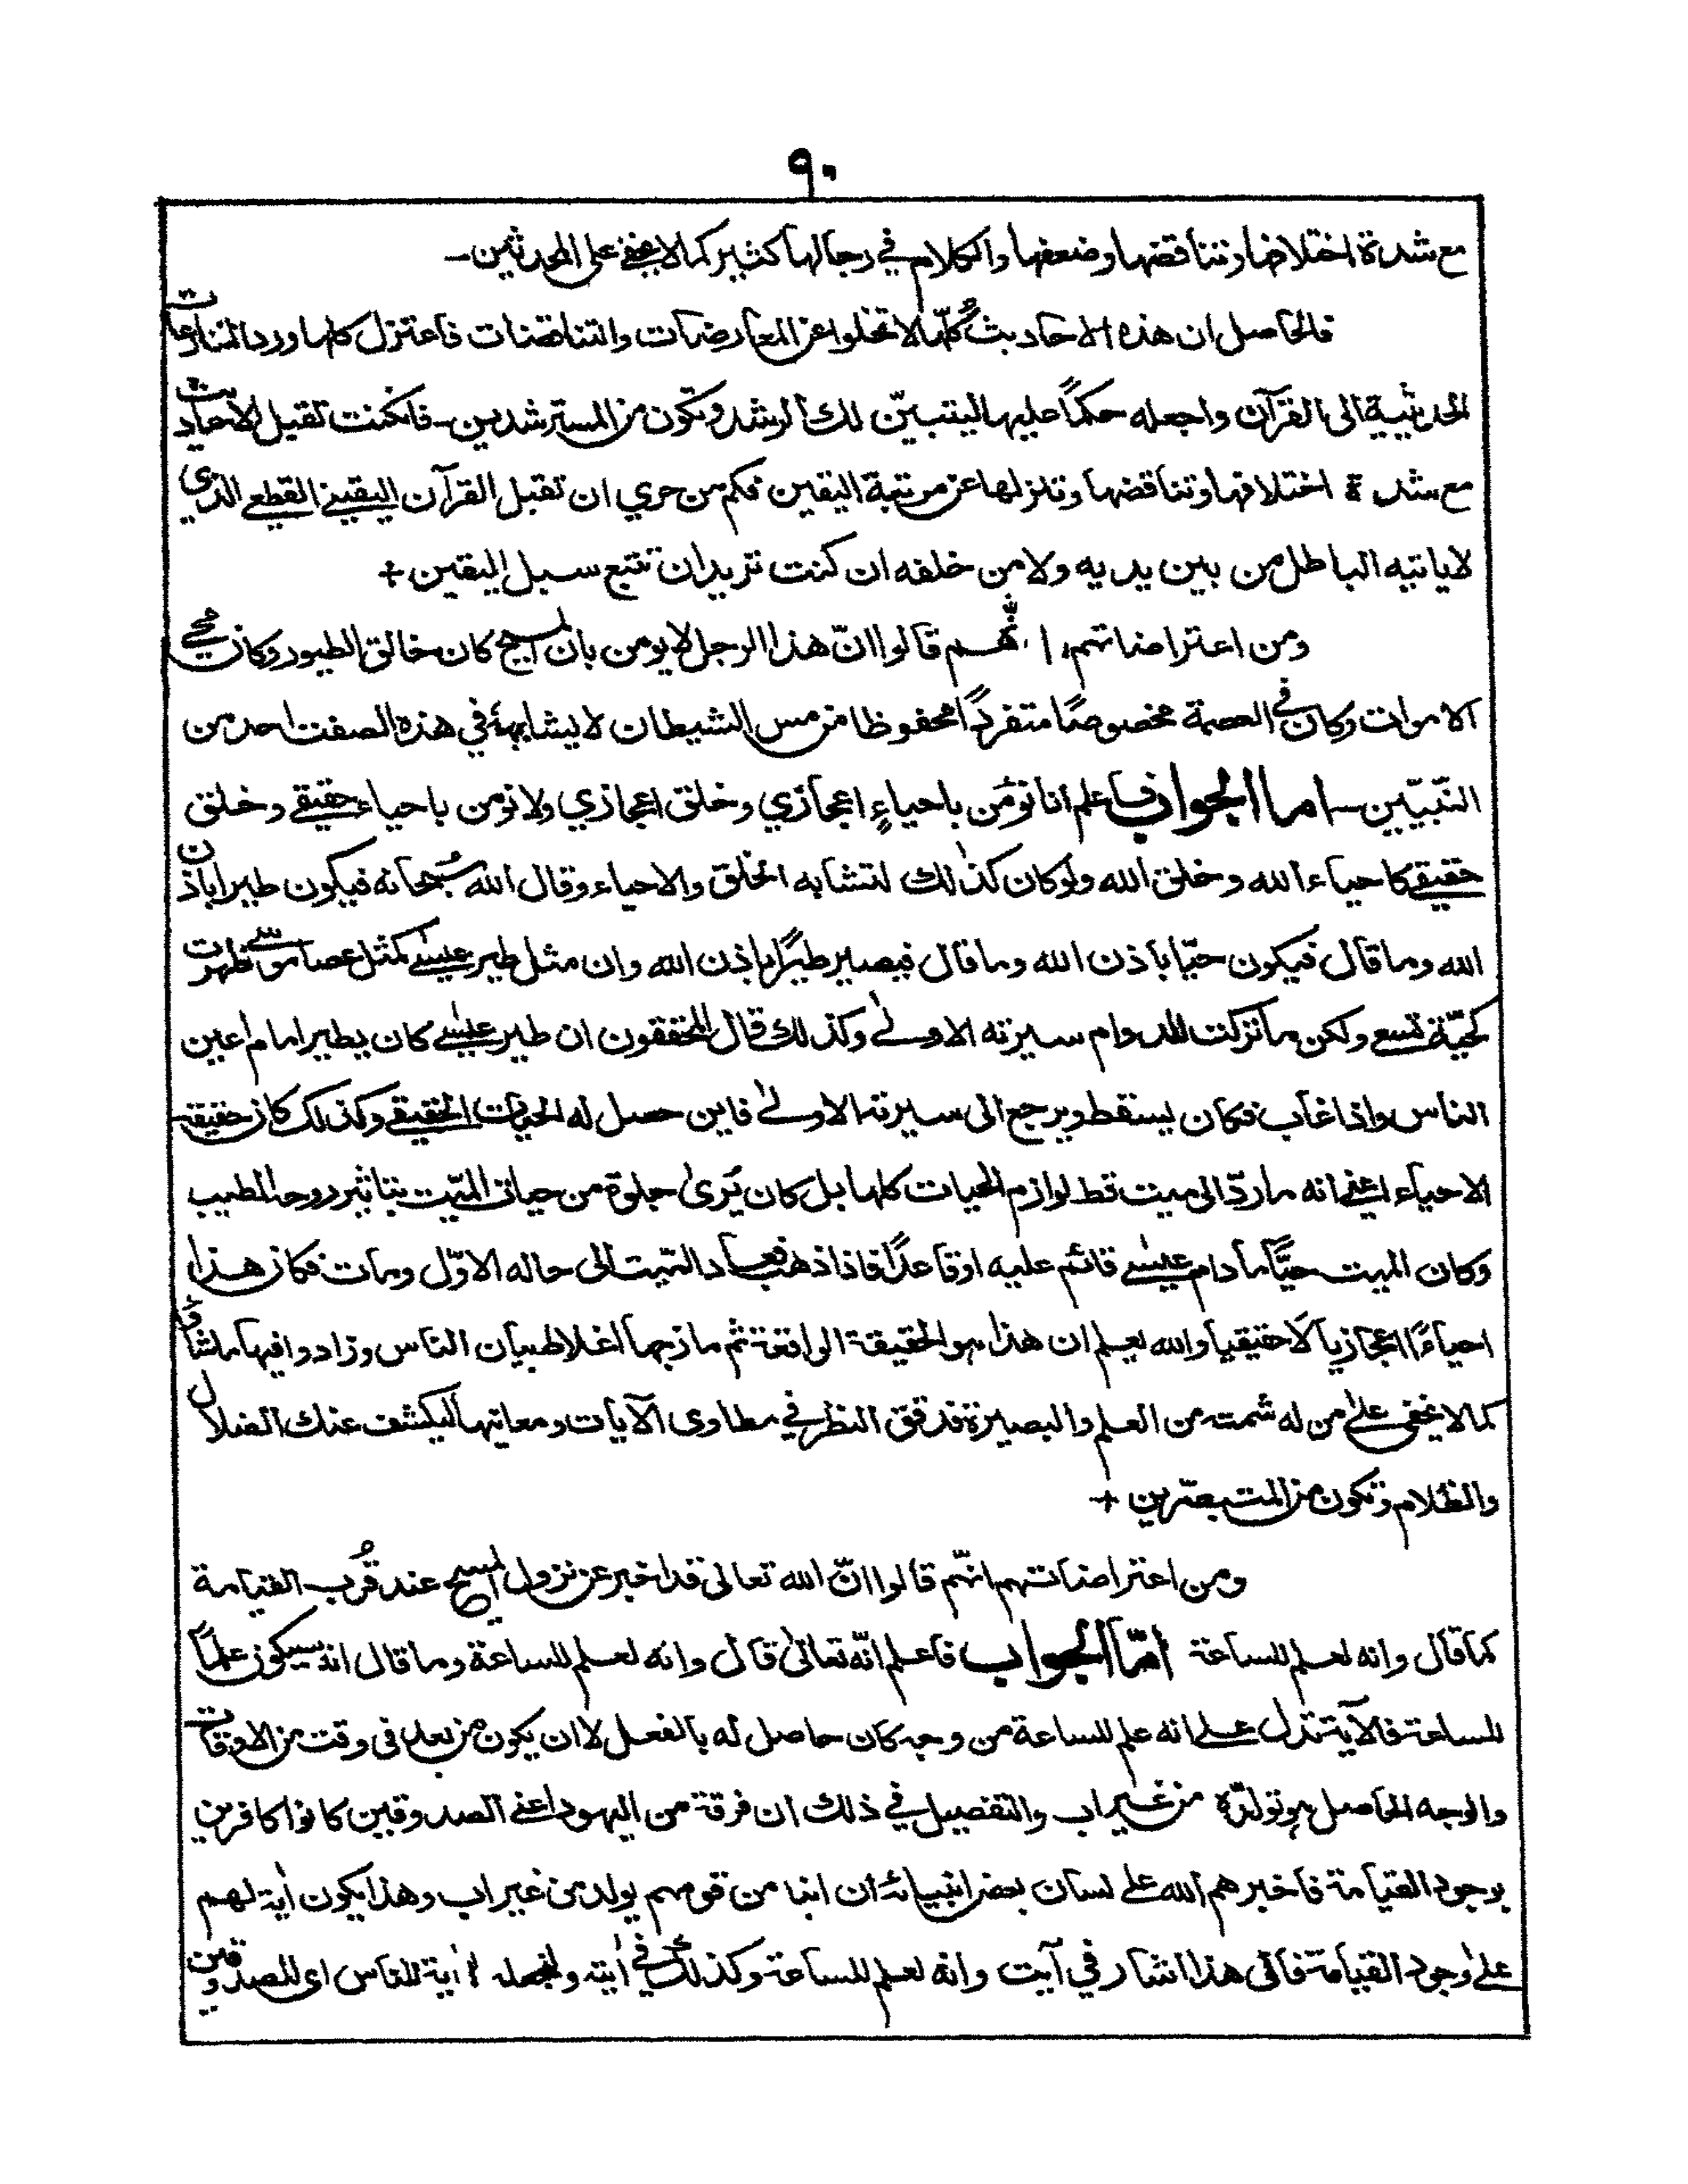 ٩٠
مع شدة اختلافها وتناقضها وضعفها والكلام في رجالها كثير كما لا يخفى على المحدثين -
فالحاصل ان هذه الاحاديث كُلّها لا تخلوا عن المعارضات والتناقضات فاعتزل كلها ورد التنازعات
الحديثية الى القرآن واجعله حكمًا عليها ليتبيّن لك الرشد وتكون من المسترشدين - فان كنت تقبل الاحاديث
مع شدة اختلافها وتناقضها وتنزلها عن مرتبة اليقين فكم من حري ان تقبل القرآن اليقيني القطعي الذي
لا ياتيه الباطل من بين يديه ولا من خلفه ان كنت تريد ان تتبع سبل اليقين +
ومن اعتراضاتهم انّهم قالوا انّ هذا الرجل لا يومن بان المسيح كان خالق الطيور وكان محي
الاموات وكان في العصمة مخصوصًا متفردًا محفوظا من مس الشيطان لا يشابهه في هذه الصفت احد من
النّبيّين - اما الجواب فاعلم انا نؤمن باحياءٍ اعجازي وخلق اعجازي ولا نومن باحياء حقيقي وخلق
حقيقي كاحياء الله وخلق الله ولو كان كذلك لتشابه الخلق والاحياء وقال الله سُبحانه فيكون طيرا باذن
الله وما قال فيكون حيّا باذن الله وما قال فيصير طيرًا باذن الله وان مثل طير عيسى كمثل عصا موسى ظهرت
كحيّة تسعى ولكن ما تركت للدوام سيرته الاولى وكذلك قال المحققون ان طير عيسى كان يطير امام اعين
الناس واذا غاب فكان يسقط ويرجع الى سيرته الاولى فاين حصل له الحيات الحقيقي وكذلك كان حقيقة
الاحياء اعني انه ما ردّ الى ميت قط لوازم الحيات كلها بل كان يُرى جلوة من حيات الميّت بتاثير روحه الطيب
وكان الميت حيًّا ما دام عيسى قائم عليه او قاعدًا فاذا ذهب فعاد الميّت الى حاله الاوّل ومات فكان هذا
احياءً اعجازيا لا حقيقيا والله يعلم ان هذا هو الحقيقة الواقعة ثم مازجها اغلاط بيان الناس وزادوا فيها ما شاؤا
كما لا يخفى على من له شمت من العلم والبصيرة فدقق النظر في مطاوى الآيات ومعانيها ليكشف عنك الضلال
والظلام وتكون من المتبصّرين +
ومن اعتراضاتهم انّهم قالوا انّ الله تعالى قد اخبر عن نزول المسيح عند قُرب القيامة
كما قال وانه لعلم للساعة امّا الجواب فاعلم انّه تعالى قال وانه لعلم للساعة وما قال انه سيكون علمًا
للساعة فالآية تدل على انه علم للساعة من وجه كان حاصل له بالفعل لا ان يكون من بعد فى وقت من الاوقات
والوجه الحاصل هو تولّده من غير اب والتفصيل في ذلك ان فرقة من اليهود اعني الصدوقين كانوا كافرين
بوجود القيامة فاخبرهم الله على لسان بعض انبيائه ان ابنا من قومهم يولد من غير اب وهذا يكون اٰية لهم
على وجود القيامة فالى هذا اشار في آيت وانه لعلم للساعة وكذلك في اٰيته ولنجعله اٰية للناس اى للصدوقين